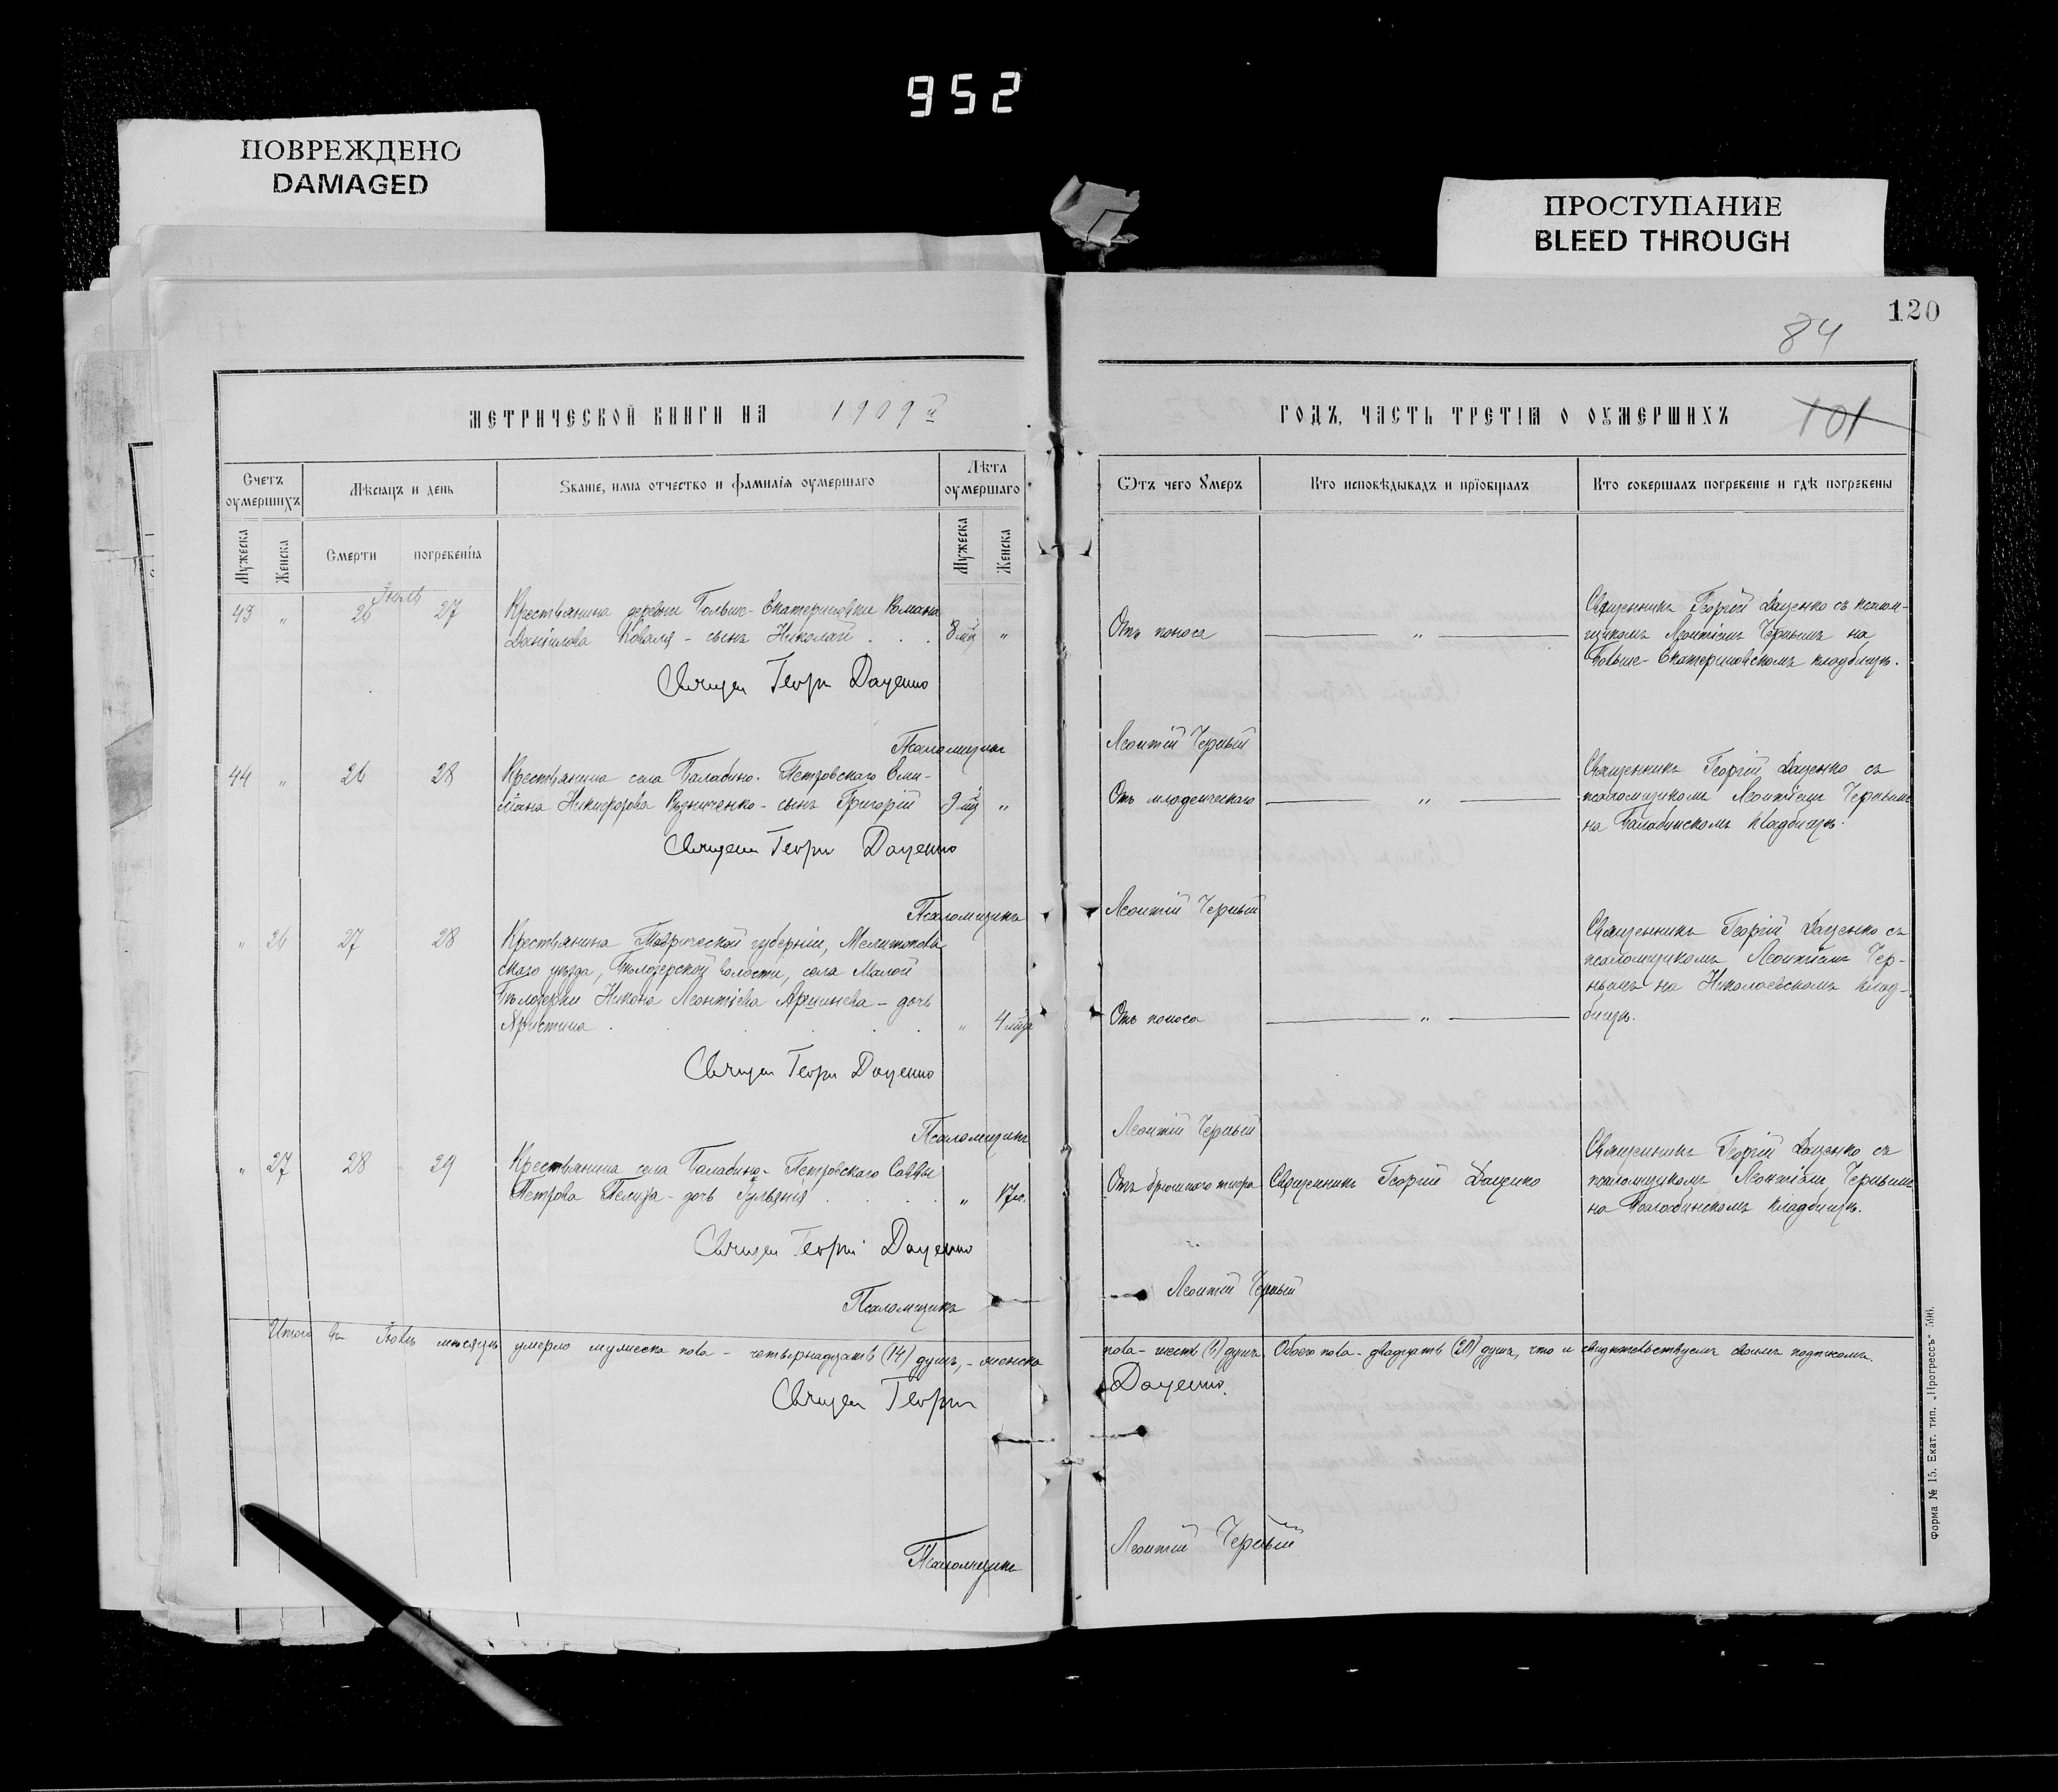 952
ПОВРЕЖДЕНО
DAMAGED
ПРОСТУПАНИЕ
BLEED THROUGH
120
84
МЕТРИЧЕСКОЙ КНИГИ НА 1909й
ГОДЪ, ЧАСТЬ ТРЕТІЯ О ОУМЕРШИХЪ
101
Счетъ оумершихъ
Мѣсяцъ и день
Званіе, имя отчество и фамилія оумершаго
Лѣта оумершаго
Отъ чего умеръ
Кто исповѣдывалъ и пріобщалъ
Кто совершалъ погребеніе и гдѣ погребены
Мужеска
Женска
Смерти
погребенія
Мужеска
Женска
Іюль
43 " 26 27
Крестьянина деревни Больше-Екатериновки Романа
Даніилова Коваля - сынъ Николай . . . 8 мц "
Отъ поноса
"
Священникъ Георгій Даценко съ псалом-
щикомъ Леонтіемъ Чернымъ на
Больше-Екатериновскомъ кладбищѣ.
Священ Георгій Даценко
Псаломщикъ Леонтій Черный
44 " 26 28
Крестьянина села Балабино-Петровскаго Еми-
ліана Никифорова Рудниченко - сынъ Григорій 9 мц "
Отъ младенческаго
"
Священникъ Георгій Даценко съ
псаломщикомъ Леонтіемъ Чернымъ
на Балабинскомъ кладбищѣ.
Священ Георгій Даценко
Псаломщикъ Леонтій Черный
" 26 27 28
Крестьянина Таврической губерніи, Мелитополь-
скаго уѣзда, Бѣлозерской волости, села Малой
Бѣлозерки Никона Леонтіева - дочь
Христина . . . . " 4 мца
Отъ поноса
"
Священникъ Георгій Даценко съ
псаломщикомъ Леонтіемъ Чер-
нымъ на Николаевскомъ клад-
бищѣ.
Священ Георгій Даценко
Псаломщикъ Леонтій Черный
" 27 28 29
Крестьянина села Балабино-Петровскаго Саввы
Петрова - дочь Іульянія . . . " 17 л.
Отъ брюшного тифа
Священникъ Георгій Даценко
Священникъ Георгій Даценко съ
псаломщикомъ Леонтіемъ Чернымъ
на Балабинскомъ кладбищѣ.
Священ Георгій Даценко
Псаломщикъ Леонтій Черный
Итого въ Іюлѣ мѣсяцѣ умерло мужеска пола - четырнадцать (14) душъ, - женска пола - шесть (6) душъ Обоего пола - двадцать (20) душъ, что и свидѣтельствуемъ своимъ подписомъ.
Священ Георгій Даценко.
Псаломщикъ Леонтій Черный
Форма № 15. Екат. тип. „Прогрессъ" 596.